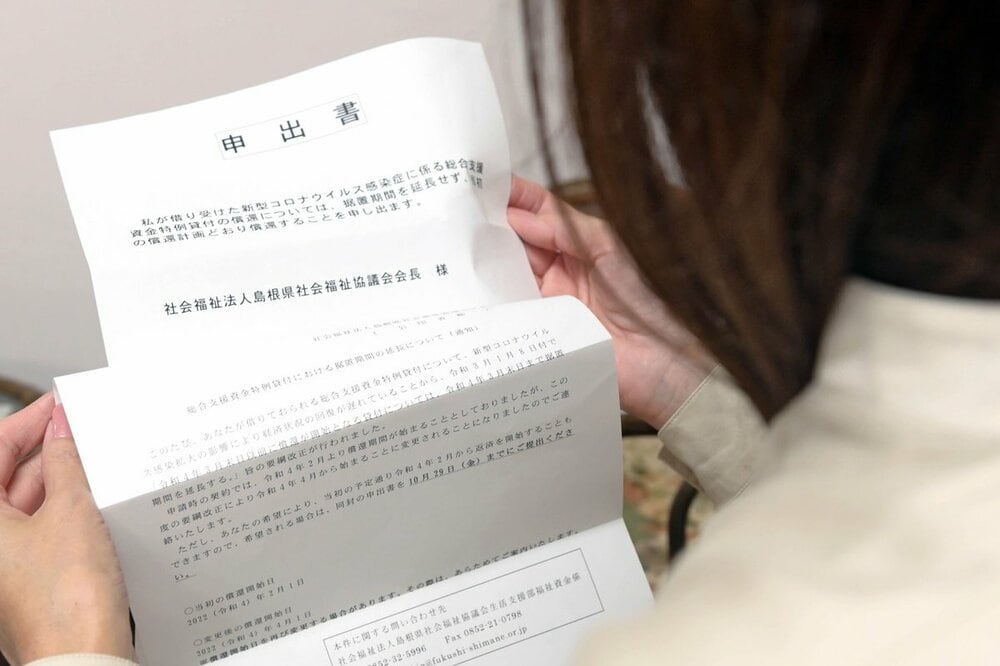 申出書
私が借り受けた新型コロナウイルス感染症に係る総合支援
資金特例貸付の償還については、据置期間を延長せず、当初
の償還計画どおり償還することを申し出ます。
社会福祉法人島根県社会福祉協議会会長 様
総合支援資金特例貸付における据置期間の延長について（通知）
このたび、あなたが借りておられる総合支援資金特例貸付について、新型コロナウイル
ス感染拡大の影響により経済状況の回復が遅れていることから、令和3月18日付で
「令和4年3月末日以前に償還が開始となる貸付については、令和4年3月末日まで据置
期間を延長する。」旨の要綱改正が行われました。
申請時の契約では、令和4年2月より償還期間が始まることとしておりましたが、この
度の要綱改正により令和4年4月から始まることに変更されることになりましたのでご連
絡いたします。
ただし、あなたの希望により、当初の予定通り令和4年2月から返済を開始することも
できますので、希望される場合は、同封の申出書を10月29日（金）までにご提出くださ
い。
○当初の償還開始日
2022（令和4）年2月1日
○変更後の償還開始日
2022（令和4）年4月1日
償還開始日を再び変更する場合があります。その際は、あらためてご案内いたします。
本件に関する問い合わせ先
社会福祉法人島根県社会福祉協議会生活支援部福祉資金係
0852-32-5996 Fax 0852-21-0798
@fukushi-shimane.or.jp